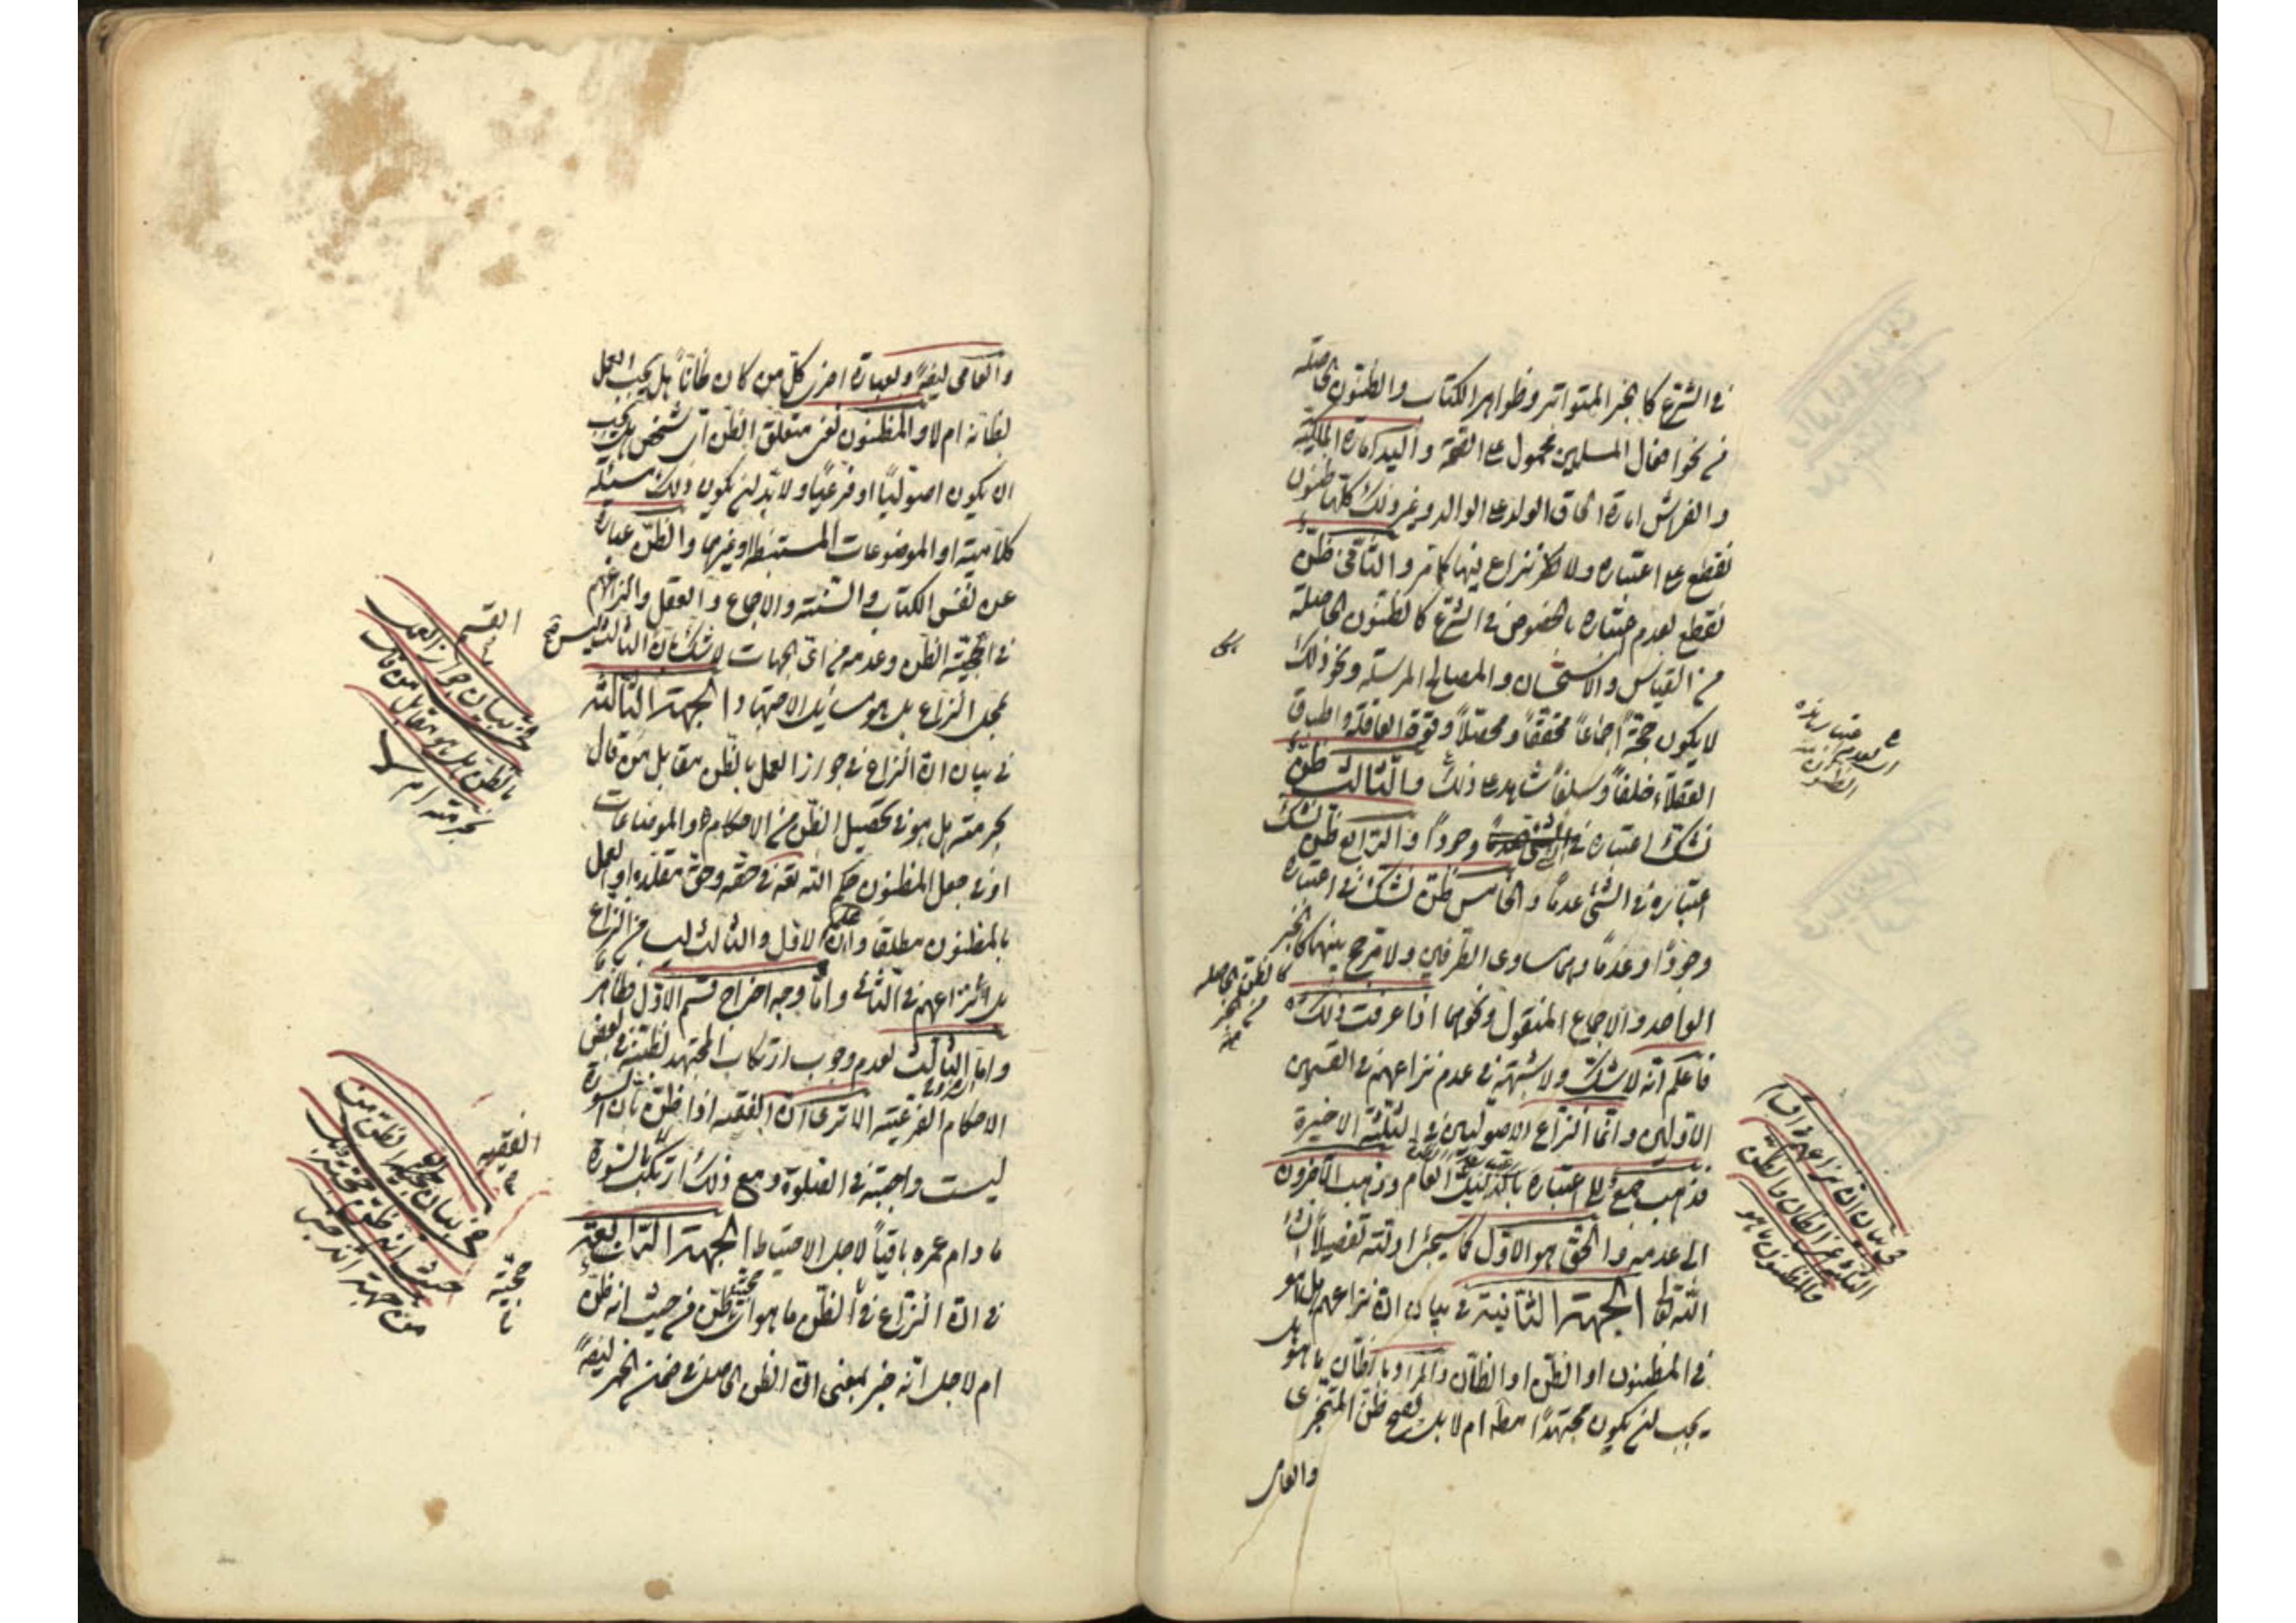 في الشرع كالخبر المتواتر وظواهر الكتاب والظنون الحاصلة
من نحو افعال المسلمين محمول على الصحة واليد امارة الملكية
والفراش امارة الحاق الولد على الوالد وغير ذلك كلها ظنون
نقطع على اعتباره ولا نزاع فيها كما مر والثاني ظن
نقطع بعدم اعتباره بالخصوص في الشرع كالظنون الحاصلة
من القياس والاستحسان والمصالح المرسلة ونحو ذلك
لا يكون حجة اجماعاً محققاً ومحصلاً وقوة العاقلة واطباق
العقلاء خلفاً وسلفاً شاهد على ذلك والثالث ظن
نشك اعتباره في وجوداً والرابع ظن نشك
اعتباره في الشئ عدماً والخامس ظن نشك في اعتباره
وجوداً وعدماً وهما متساوى الطرفين ولا مرجح بينهما كالخبر
الواحد والاجماع المنقول ونحوهما اذا عرفت ذلك
فاعلم انه لا شك ولا شبهة في عدم نزاعهم في القسمين
الاولين وانما النزاع الاصوليين في الثلثة الاخيرة
فذهب جمع الى اعتباره العام وذهب الآخرون
الى عدمه والحق هو الاول كما سيجئ ادلته تفصيلاً انشاء
الله تعالى الجهة الثانية في بيان ان نزاعهم هل هو
في المظنون او الظن او الظان والمراد بالظان ما هو هل
يجب ان يكون مجتهداً مطلقا ام لا بل يصح ظن المتجزى
والعامى
في بيان ان نزاعهم في اقسام
الثلثة في الظان والظن
والمظنون ما هو
كالظن الحاصلة
من الخبر
والعامى ايضاً وبعبارة اخرى كل من كان ظاناً هل يجب العمل
بظانه ام لا والمظنون يعنى متعلق الظن اى شخص هل يجب
ان يكون اصولياً او فرعياً ولا بد ان يكون ذلك مسئلة
كلامية او الموضوعات المستنبطة وغيرها والظن عبارة
عن نفس الكتاب والسنة والاجماع والعقل والنزاع
في حجية الظن وعدمه من اى الجهات لا شك بان الثالث ليس
محل النزاع بل هو مسايل الاجتهاد الجهة الثالثة
في بيان ان النزاع في جواز العمل بالظن مقابل من قال
بحرمته هل هو في تحصيل الظن من الاحكام والموضوعات
او في جعل المظنون حكم الله تعالى في حقه وحق مقلده او العمل
بالمظنون مطلقا وان الاول والثالث ليس من النزاع
بل نزاعهم في الثاني واما وجه اخراج قسم الاول فظاهر
واما الثالث لعدم وجوب ارتكاب المجتهد لظنه في بعض
الاحكام الفرعية الا ترى ان الفقيه اذا ظن بان السورة
ليست واجبة في الصلوة ومع ذلك ارتكب بالسورة
ما دام عمره باقياً لاجل الاحتياط الجهة الرابعة
في ان النزاع في الظن ما هو اى حجية ظن من حيث انه ظن
ام لاجل انه خبر بمعنى ان الظن الحاصل في ضمن الخبر ايضاً
القسم
في بيان جواز العمل
بالظن هل هو مقابل من قال
بحرمته ام لا
الفقيه
في بيان حجية الظن من
حيث انه ظن
من جهة انه خبر
حجية